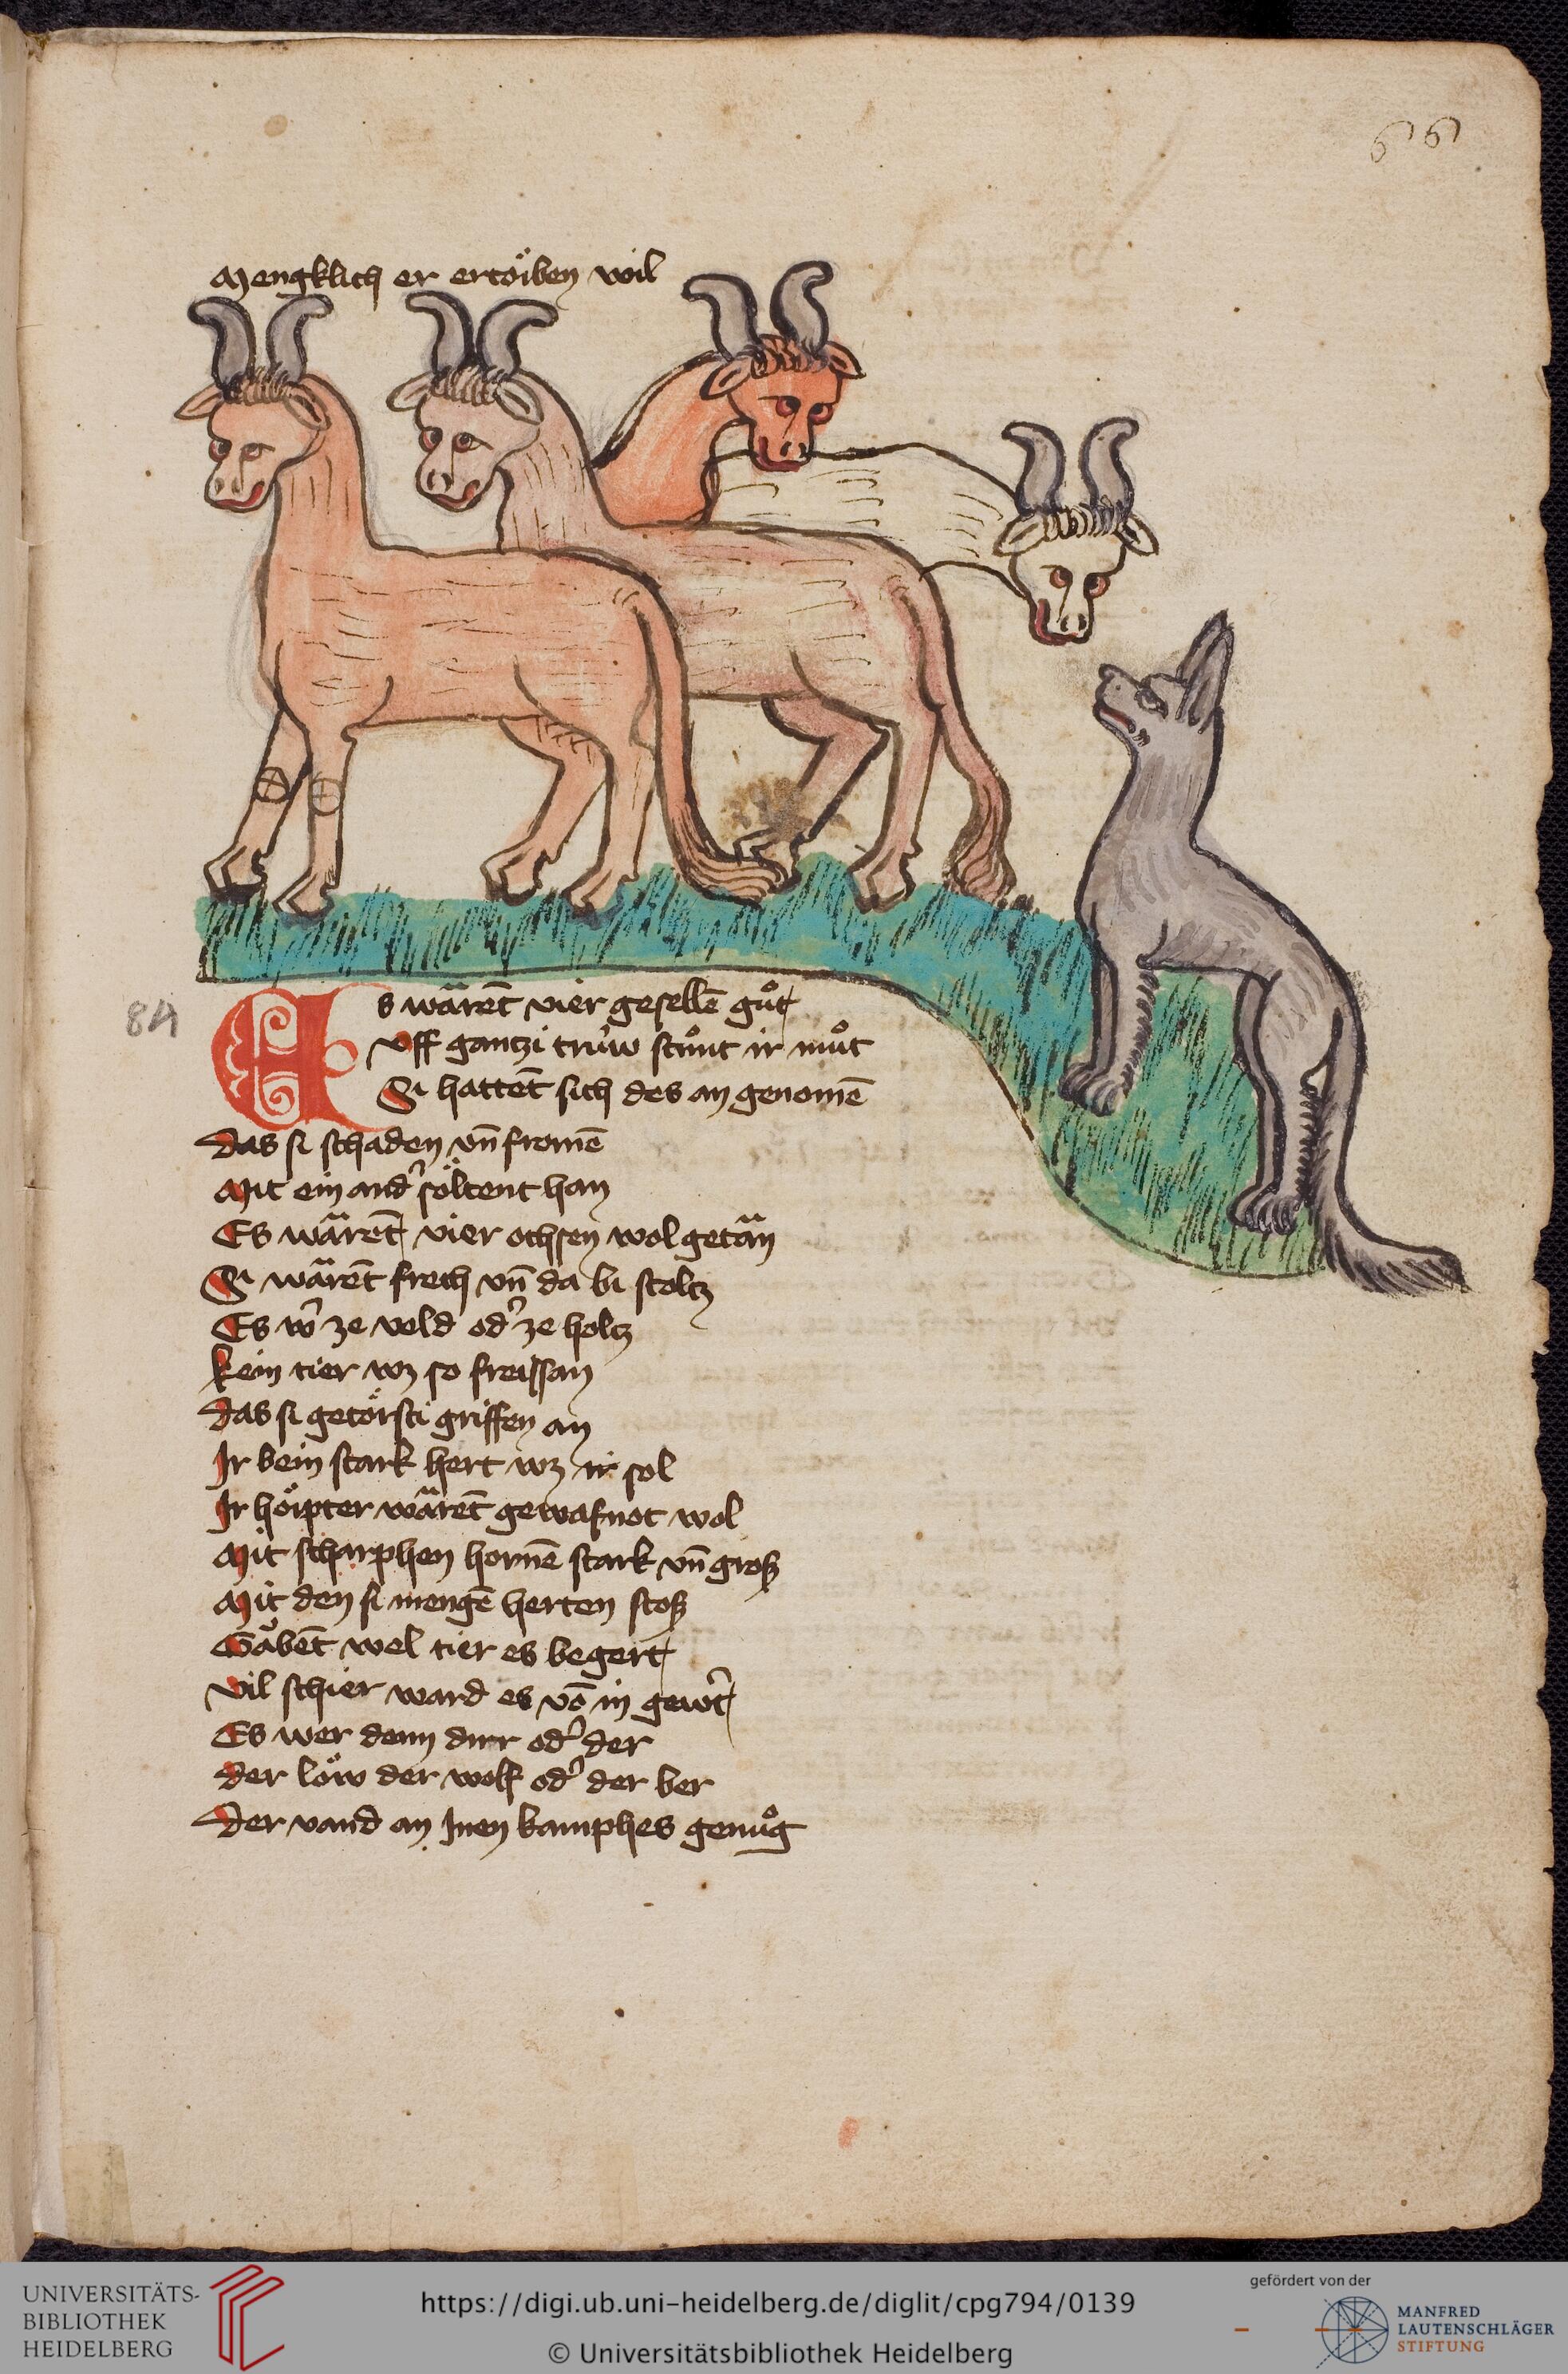 66
Mengklich er ertoͤiben wil
Es wärent̄ vier geselle̅ guͦt
Vff gantzi trüw stuͦnt ir muͦt
Si hattent̄ sich des an genome̅
84
Das si schaden vn̅ frome̅
Mit ein and͛ söltent han
Es wärent̄ vier ochsen wol getän
Si wärent̄ frech vn̅ da bi stoltz
Es w͛ ze veld od͛ ze holtz
Kein tier wz so freissan
Das si getörsti griffen an
Ir bein stark hert wz ir sol
Ir höipter wärent̄ gewafnot wol
Mit scharphen horne̅ stark vn̅ groß
Mit den si menge̅ herten stoß
Gäbent̄ wel tier es begert
Vil schier ward es vo̅ in gew͛t
Es wer denn dirr od͛ der
Der löw der wolf od͛ der ber
Der vand an Inen kamphes genuͦg
UNIVERSITÄTS-
BIBLIOTHEK
HEIDELBERG
https://digi.ub.uni-heidelberg.de/diglit/cpg794/0139
© Universitätsbibliothek Heidelberg
gefördert von der
MANFRED
LAUTENSCHLÄGER
STIFTUNG